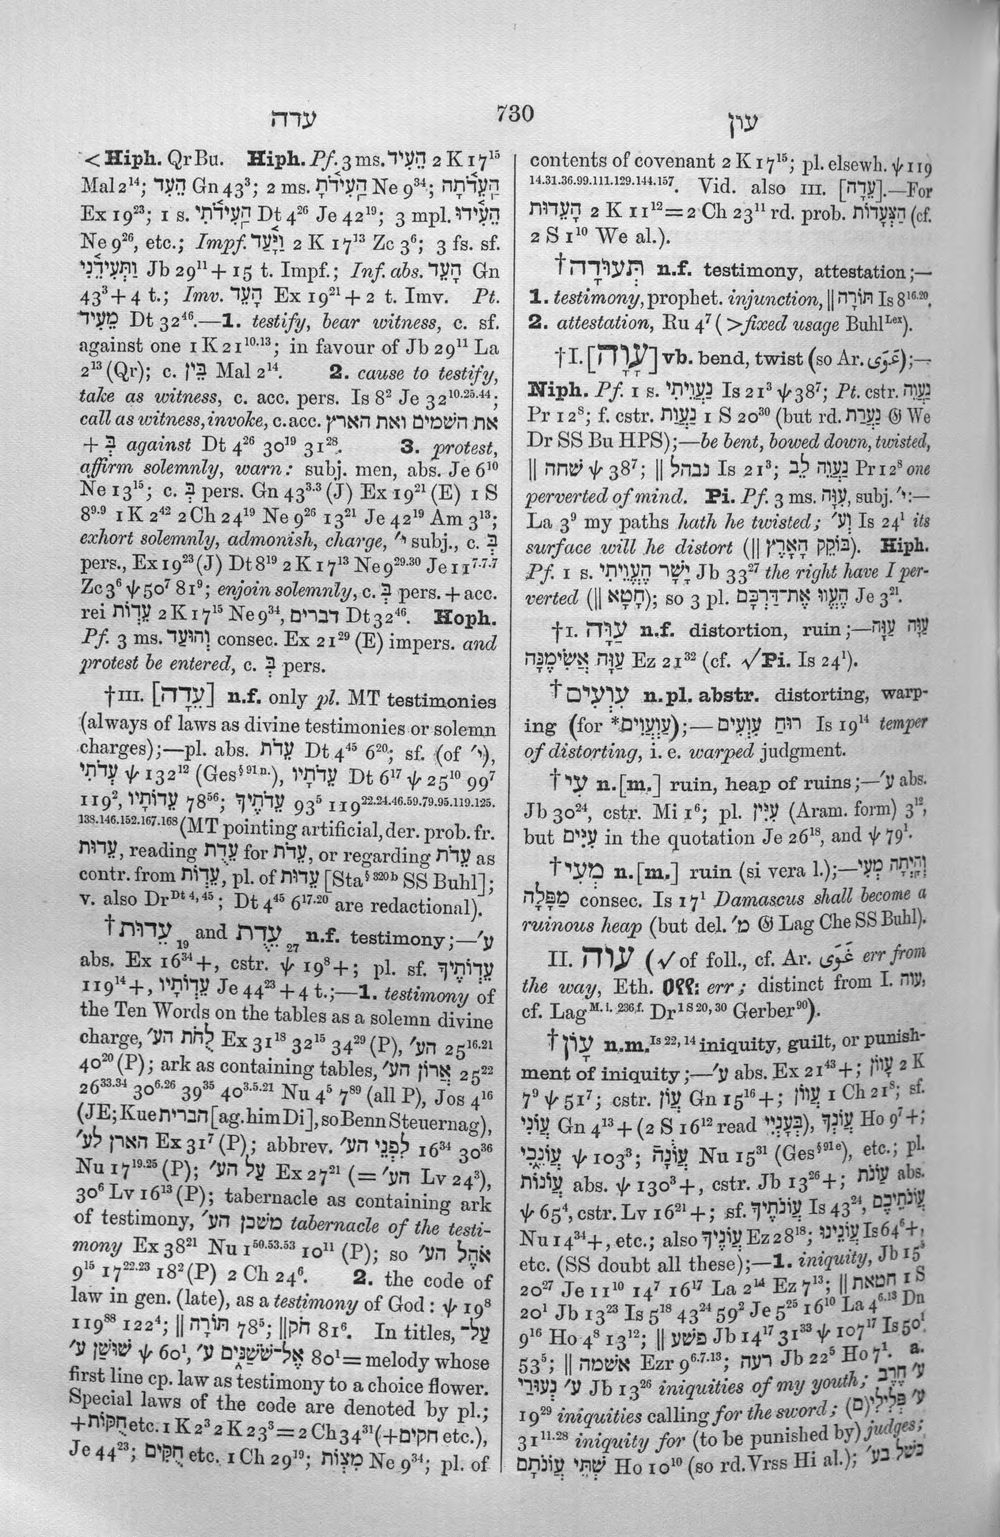 עדה
730
עון
< Hiph. Qr Bu. Hiph. Pf. 3 ms. הֵעִיד 2 K 17¹⁵
Mal 2¹⁴; הֵעֵד Gn 43³; 2 ms. Ne 9³⁴;
Ex 19²³; 1 s. Dt 4²⁶ Je 42¹⁹; 3 mpl. הֵעִידוּ
Ne 9²⁶, etc.; Impf. וַיָּ֫עַד 2 K 17¹³ Zc 3⁶; 3 fs. sf.
וַתְּעִידֵנִי Jb 29¹¹ + 15 t. Impf.; Inf. abs. הָעֵד Gn
43³ + 4 t.; Imv. הָעֵד Ex 19²¹ + 2 t. Imv. Pt.
מֵעִיד Dt 32⁴⁶.—1. testify, bear witness, c. sf.
against one 1 K 21¹⁰·¹³; in favour of Jb 29¹¹ La
2¹³ (Qr); c. בֵּין Mal 2¹⁴. 2. cause to testify,
take as witness, c. acc. pers. Is 8² Je 32¹⁰·²⁵·⁴⁴;
call as witness, invoke, c. acc. את השמים ואת הארץ
+ בְּ against Dt 4²⁶ 30¹⁹ 31²⁸. 3. protest,
affirm solemnly, warn: subj. men, abs. Je 6¹⁰
Ne 13¹⁵; c. בְּ pers. Gn 43³·³ (J) Ex 19²¹ (E) 1 S
8⁹·⁹ 1 K 2⁴² 2 Ch 24¹⁹ Ne 9²⁶ 13²¹ Je 42¹⁹ Am 3¹³;
exhort solemnly, admonish, charge, י׳ subj., c. בְּ
pers., Ex 19²³ (J) Dt 8¹⁹ 2 K 17¹³ Ne 9²⁹·³⁰ Je 11⁷·⁷·⁷
Zc 3⁶ ψ 50⁷ 81⁹; enjoin solemnly, c. בְּ pers. + acc.
rei עֵדְוֹת 2 K 17¹⁵ Ne 9³⁴, דברים Dt 32⁴⁶. Hoph.
Pf. 3 ms. וְהוּעַד consec. Ex 21²⁹ (E) impers. and
protest be entered, c. בְּ pers.
†III. [עֵדָה] n.f. only pl. MT testimonies
(always of laws as divine testimonies or solemn
charges);—pl. abs. עֵדֹת Dt 4⁴⁵ 6²⁰; sf. (of י׳),
עֵדֹתִי ψ 132¹² (Ges§ 91 n.), עֵדֹתָיו Dt 6¹⁷ ψ 25¹⁰ 99⁷
119², עֵדוֹתָיו 78⁵⁶; עֵדֹתֶיךָ 93⁵ 119²²·²⁴·⁴⁶·⁵⁹·⁷⁹·⁹⁵·¹¹⁹·¹²⁵·
¹³⁸·¹⁴⁶·¹⁵²·¹⁶⁷·¹⁶⁸ (MT pointing artificial, der. prob. fr.
עֵדוּת, reading for עֵדֹת, or regarding עֵדֹת as
contr. from עֵדְוֹת, pl. of עֵדוּת [Sta§ 320 b SS Buhl];
v. also Dr Dt 4, 45; Dt 4⁴⁵ 6¹⁷·²⁰ are redactional).
†עֵדוּת 19 and עֵדֻת 27 n.f. testimony;—ע׳
abs. Ex 16³⁴ +, cstr. ψ 19⁸ +; pl. sf. עֵדְוֹתֶיךָ
119¹⁴ +, עֵדְוֹתָיו Je 44²³ + 4 t.;—1. testimony of
the Ten Words on the tables as a solemn divine
charge, לֻחֹת הע׳ Ex 31¹⁸ 32¹⁵ 34²⁹ (P), הע׳ 25¹⁶·²¹
40²⁰ (P); ark as containing tables, אֲרוֹן הע׳ 25²²
26³³·³⁴ 30⁶·²⁶ 39³⁵ 40³·⁵·²¹ Nu 4⁵ 7⁸⁹ (all P), Jos 4¹⁶
(JE; Kue הברית [ag. him Di], so Benn Steuernag),
הארן לע׳ Ex 31⁷ (P); abbrev. לִפְנֵי הע׳ 16³⁴ 30³⁶
Nu 17¹⁹·²⁵ (P); עַל הע׳ Ex 27²¹ (= הע׳ Lv 24³),
30⁶ Lv 16¹³ (P); tabernacle as containing ark
of testimony, משכן הע׳ tabernacle of the testi-
mony Ex 38²¹ Nu 1⁵⁰·⁵³·⁵³ 10¹¹ (P); so אֹהֶל הע׳
9¹⁵ 17²²·²³ 18² (P) 2 Ch 24⁶. 2. the code of
law in gen. (late), as a testimony of God: ψ 19⁸
119⁸⁸ 122⁴; || תּוֹרָה 78⁵; || חֹק 81⁶. In titles, עַל־
שׁוּשַׁן ע׳ ψ 60¹, אֶל־שֹׁשַׁנִּים ע׳ 80¹ = melody whose
first line cp. law as testimony to a choice flower.
Special laws of the code are denoted by pl.;
+ חֻקּוֹת etc. 1 K 2³ 2 K 23³ = 2 Ch 34³¹ (+ חקים etc.),
Je 44²³; חֻקִּים etc. 1 Ch 29¹⁹; מִצְוֹת Ne 9³⁴; pl. of
contents of covenant 2 K 17¹⁵; pl. elsewh. ψ 119
¹⁴·³¹·³⁶·⁹⁹·¹¹¹·¹²⁹·¹⁴⁴·¹⁵⁷. Vid. also III. [עֵדָה].—For
הָעֵדוּת 2 K 11¹² = 2 Ch 23¹¹ rd. prob. הַצְּעָדוֹת (cf.
2 S 1¹⁰ We al.).
†תְּעוּדָה n.f. testimony, attestation;—
1. testimony, prophet. injunction, || תּוֹרָה Is 8¹⁶·²⁰.
2. attestation, Ru 4⁷ (> fixed usage Buhl Lex).
†I. [עָוָה] vb. bend, twist (so Ar. عَوَى);—
Niph. Pf. 1 s. נַעֲוֵיתִי Is 21³ ψ 38⁷; Pt. cstr. נַעֲוֵה
Pr 12⁸; f. cstr. נַעֲוַת 1 S 20³⁰ (but rd. נַעֲרַת 𝔊 We
Dr SS Bu HPS);—be bent, bowed down, twisted,
|| שחח ψ 38⁷; || נבהל Is 21³; נַעֲוֵה לֵב Pr 12⁸ one
perverted of mind. Pi. Pf. 3 ms. עִוָּה, subj. י׳:—
La 3⁹ my paths hath he twisted; וְע׳ Is 24¹ its
surface will he distort (|| בּוֹקֵק הָאָרֶץ). Hiph.
Pf. 1 s. יָשָׁר הֶעֱוֵיתִי Jb 33²⁷ the right have I per-
verted (|| חָטָא); so 3 pl. הֶעֱווּ אֶת־דַּרְכָּם Je 3²¹.
†I. עַוָּה n.f. distortion, ruin;—עַוָּה עַוָּה
עַוָּה אֲשִׂימֶנָּה Ez 21³² (cf. √ Pi. Is 24¹).
†עִוְעִים n.pl. abstr. distorting, warp-
ing (for *עִוְעֲוִים);—רוּחַ עִוְעִים Is 19¹⁴ temper
of distorting, i.e. warped judgment.
†עִי n.[m.] ruin, heap of ruins;—ע׳ abs.
Jb 30²⁴, cstr. Mi 1⁶; pl. עִיִּין (Aram. form) 3¹²,
but עִיִּים in the quotation Je 26¹⁸, and ψ 79¹.
†מְעִי n.[m.] ruin (si vera l.);—וְהָיְתָה מְעִי
מַפָּלָה consec. Is 17¹ Damascus shall become a
ruinous heap (but del. מ׳ 𝔊 Lag Che SS Buhl).
II. עוה (√ of foll., cf. Ar. غَوَى err from
the way, Eth. err; distinct from I. עוה,
cf. Lag M. i. 236, f. Dr 1 S 20, 30 Gerber⁹⁰).
†עָוֺן n.m. Is 22, 14 iniquity, guilt, or punish-
ment of iniquity;—ע׳ abs. Ex 21⁴³ +; עָווֹן 2 K
7⁹ ψ 51⁷; cstr. עֲוֺן Gn 15¹⁶ +; עֲווֹן 1 Ch 21⁸; sf.
עֲוֺנִי Gn 4¹³ + (2 S 16¹² read בְּעָנְיִי), עֲוֺנְךָ Ho 9⁷ +;
עֲוֺנֵכִי ψ 103³; עֲוֺנָהּ Nu 15³¹ (Ges§ 91 e), etc.; pl.
עֲוֺנוֹת abs. ψ 130³ +, cstr. Jb 13²⁶ +; עֲוֺנֹת abs.
ψ 65⁴, cstr. Lv 16²¹ +; sf. עֲוֺנֹתֶיךָ Is 43²⁴, עֲוֺנֹתֵיכֶם
Nu 14³⁴ +, etc.; also עֲוֺנֶיךָ Ez 28¹⁸; עֲוֺנֵינוּ Is 64⁶ +,
etc. (SS doubt all these);—1. iniquity, Jb 15⁵
20²⁷ Je 11¹⁰ 14⁷ 16¹⁷ La 2¹⁴ Ez 7¹³; || חטאת 1 S
20¹ Jb 13²³ Is 5¹⁸ 43²⁴ 59² Je 5²⁵ 16¹⁰ La 4⁶·¹³ Dn
9¹⁶ Ho 4⁸ 13¹²; || פשע Jb 14¹⁷ 31³³ ψ 107¹⁷ Is 50¹
53⁵; || אשמה Ezr 9⁶·⁷·¹³; רעה Jb 22⁵ Ho 7¹. a.
ע׳ נְעוּרַי Jb 13²⁶ iniquities of my youth; ע׳ חֶרֶב
19²⁹ iniquities calling for the sword; ע׳ פְּלִילִי(ם)
31¹¹·²⁸ iniquity for (to be punished by) judges;
שְׁתֵּי עֲוֺנֹתָם Ho 10¹⁰ (so rd. Vrss Hi al.); כשל בע׳